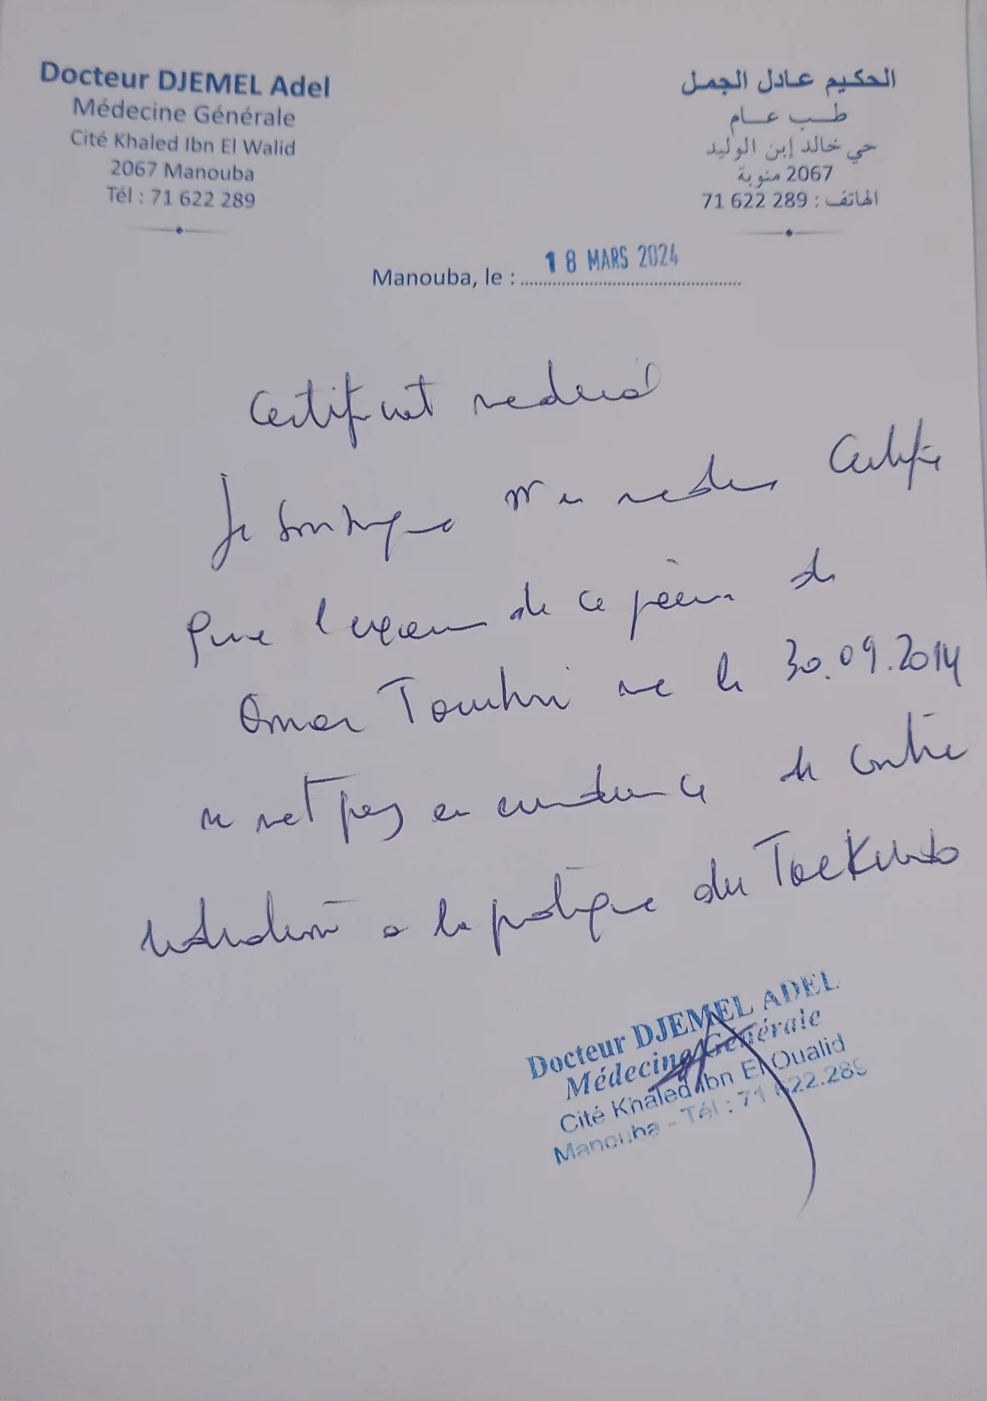 Docteur DJEMEL Adel
Médecine Générale
Cité Khaled Ibn El Walid
2067 Manouba
Tél : 71 622 289
الحكيم عادل الجمل
طب عام
حي خالد إبن الوليد
2067 منوبة
الهاتف : 289 622 71
Manouba, le : 18 MARS 2024
Certificat medical
Je soussigne en medecine Certifie
que l'examen de ce jour de
Omar ne le 30.09.2014
ne met pas en evidence de contre
indication a la pratique du Taekwondo
Docteur DJEMEL ADEL
Médecine Générale
Cité Khaled Ibn El Oualid
Manouba - Tél : 71 622.289